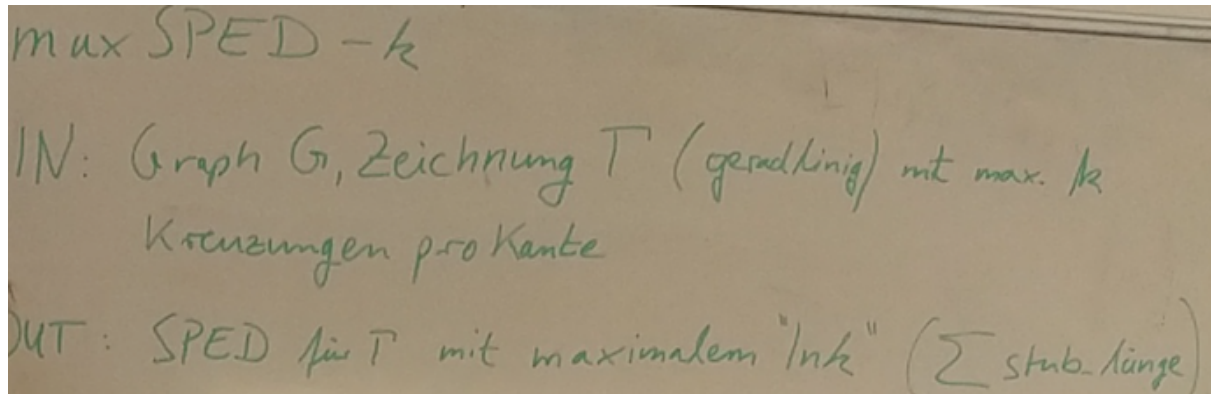 max SPED - k
IN: Graph G, Zeichnung Γ (geradlinig) mit max. k
Kreuzungen pro Kante
OUT: SPED für Γ mit maximalem "Ink" (∑ stub-länge)